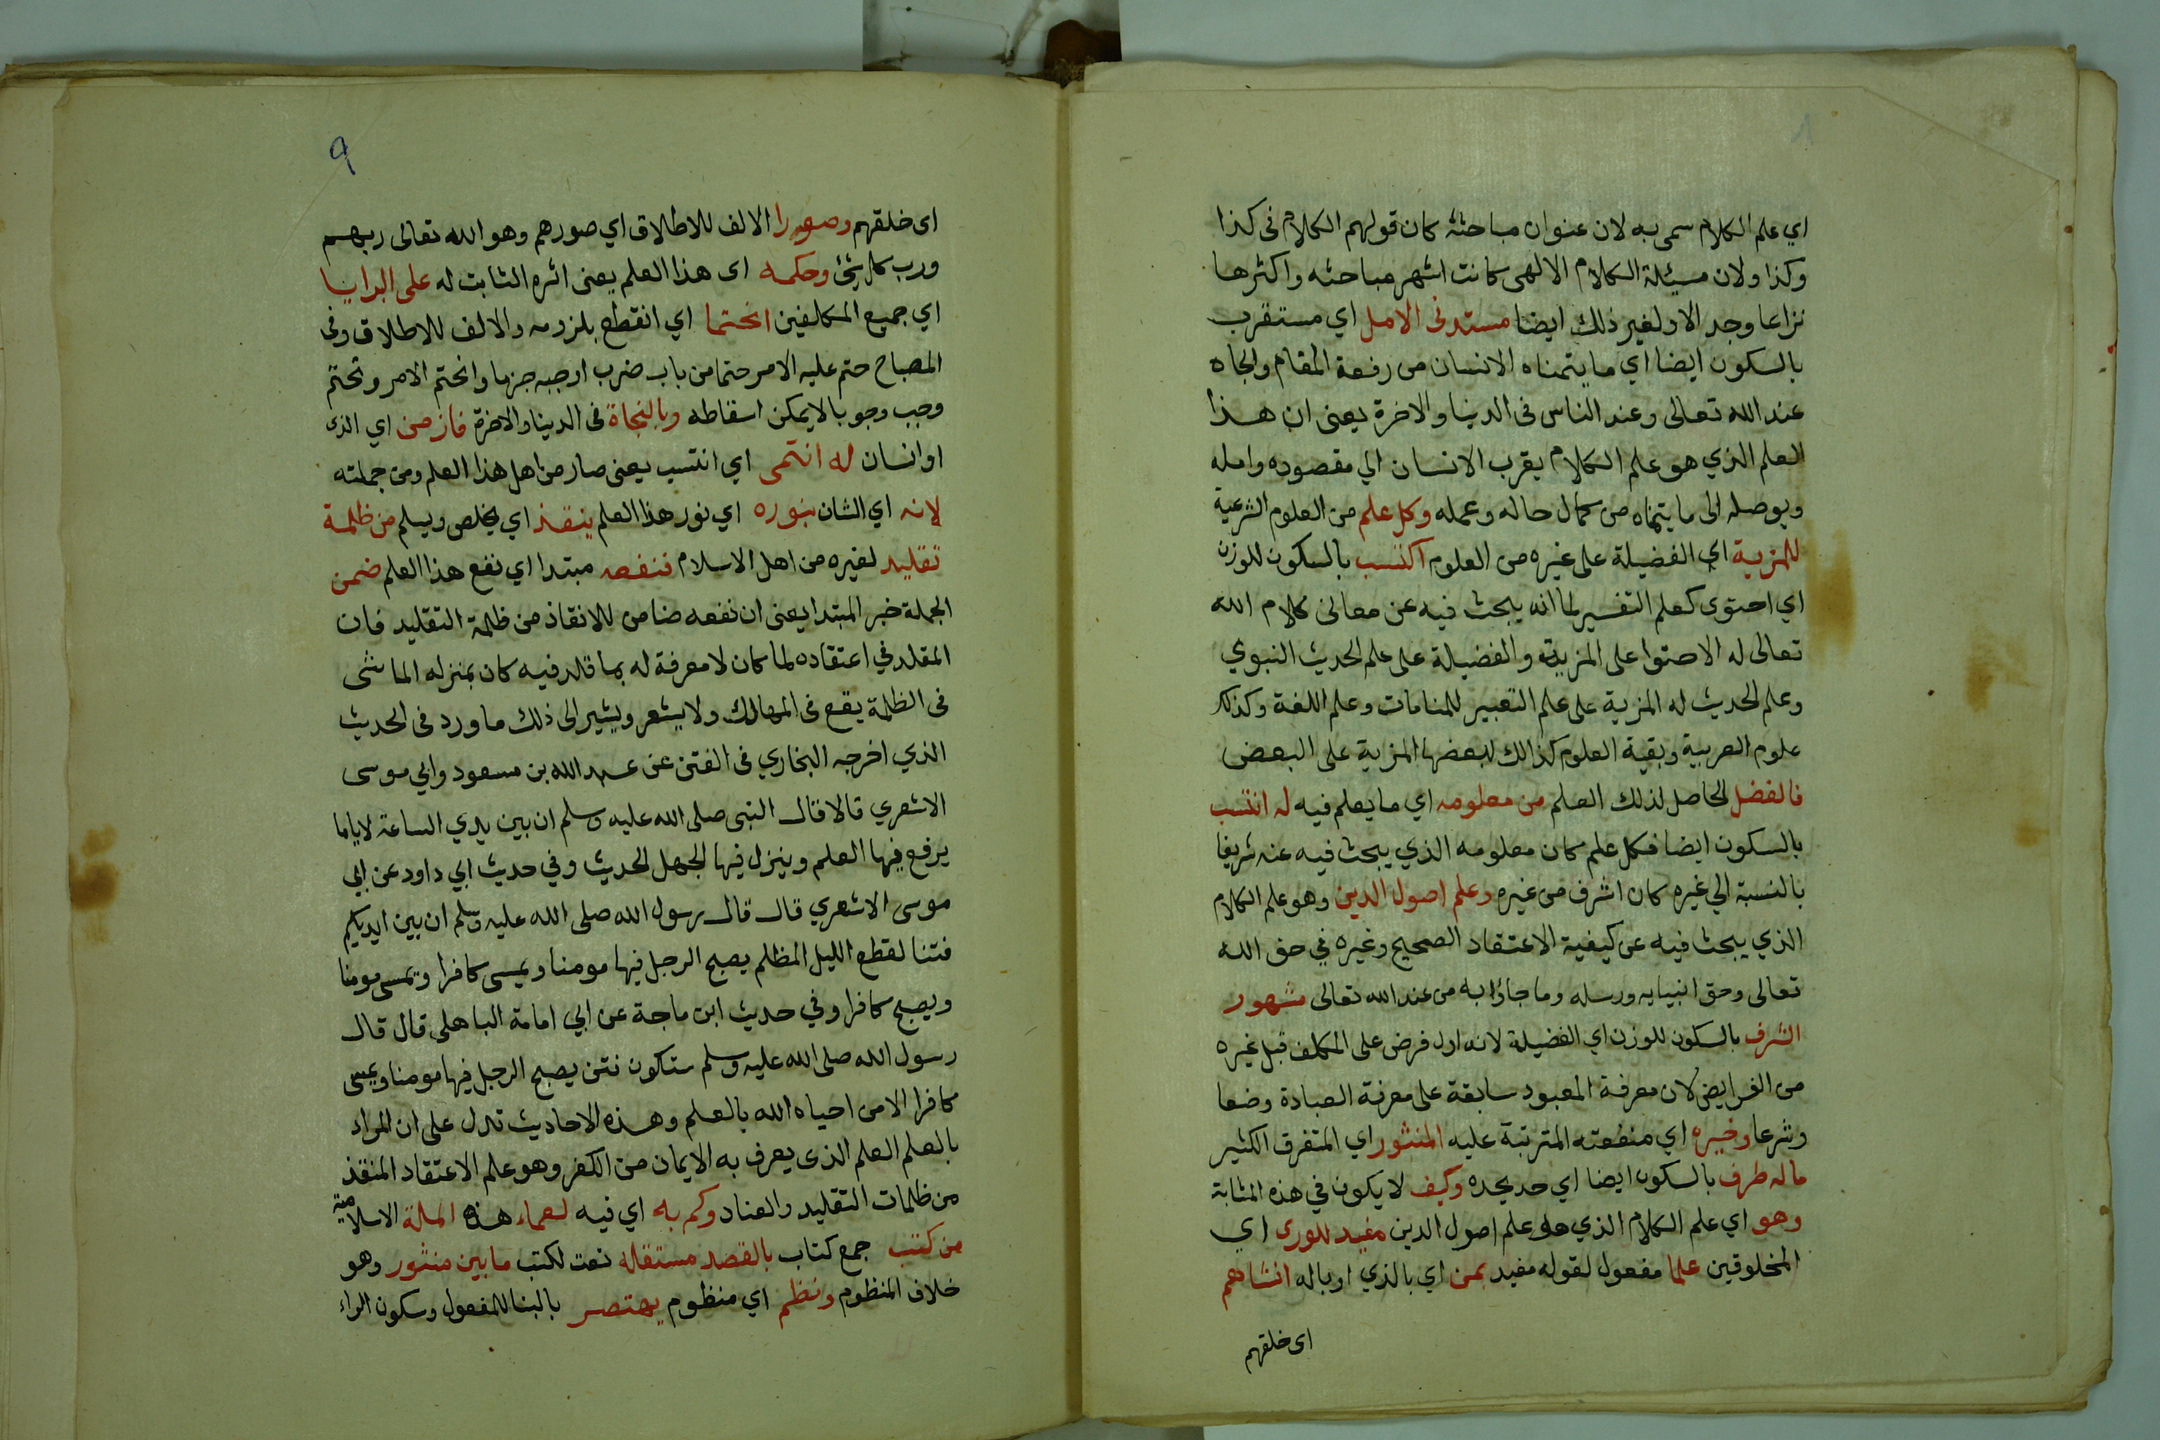 اي علم الكلام سمى به لان عنوان مباحثه كان قولهم الكلام فى كذا
وكذا ولان مسئلة الكلام الالهى كانت اشهر مباحثه واكثرها
نزاعا وجدالا ولغير ذلك ايضا مستدنى الامل اي مستقرب
بالسكون ايضا اي ما يتمناه الانسان من رفعة المقام والجاه
عند الله تعالى وعند الناس فى الدنيا والاخرة يعنى ان هذا
العلم الذي هو علم الكلام يقرب الانسان الى مقصوده وامله
ويوصله الى ما يتمناه من كمال حاله وعمله وكل علم من العلوم الشرعية
للمزية اي الفضيلة على غيره من العلوم اكتسب بالسكون للوزن
اي احتوى كعلم التفسير لما انه يبحث فيه عن معانى كلام الله
تعالى له الاحتوا على المزية والفضيلة على علم الحديث النبوي
وعلم الحديث له المزية على علم التعبير للمنامات وعلم اللغة وكذلك
علوم العربية وبقية العلوم كذالك لبعضها المزية على البعض
فالفضل الحاصل لذلك العلم من معلومه اي ما يعلم فيه له انتسب
بالسكون ايضا فكل علم كان معلومه الذي يبحث فيه عنه شريفا
بالنسبة الي غيره كان اشرف من غيره وعلم اصول الدين وهو علم الكلام
الذي يبحث فيه عن كيفية الاعتقاد الصحيح وغيره في حق الله
تعالى وحق انبيايه ورسله وما جاؤا به من عند الله تعالى مشهور
الشرف بالسكون للوزن اي الفضيلة لانه اول فرض على المكلف قبل غيره
من الفرايض لان معرفة المعبود سابقة على معرفة العبادة وضعا
وشرعا وخيره اي منفعته المترتبة عليه المنثور اي المتفرق الكثير
ماله طرف بالسكون ايضا اي حد يحده وكيف لا يكون في هذه المثابة
وهو اي علم الكلام الذي هو علم اصول الدين مفيد للورى اي
المخلوقين علما مفعول لقوله مفيد بمن اي بالذي او باله انشاهم
اى خلقهم
٩
اى خلقهم وصورا الالف للاطلاق اي صورهم وهو الله تعالى ربهم
ورب كل شئ وحكمه اى هذا العلم يعنى اثره الثابت له على البرايا
اي جميع المكلفين انحتما اي انقطع بلزومه والالف للاطلاق وفى
المصباح حتم عليه الامر حتما من باب ضرب اوجبه جزما وانحتم الامر وتحتم
وجب وجوبا لا يمكن اسقاطه وبالنجاة فى الدينا والاخرة فاز من اي الذى
او انسان له انتمى اي انتسب يعنى صار من اهل هذا العلم ومن جملته
لانه اي الشان بنوره اي نور هذا العلم ينقذ اي يخلص ويسلم من ظلمة
تقليد لغيره من اهل الاسلام فنفعه مبتدا اي نفع هذا العلم ضمن
الجملة خبر المبتدا يعنى ان نفعه ضامن للانقاذ من ظلمة التقليد فان
المقلد في اعتقاده لما كان لا معرفة له بما قلد فيه كان بمنزله الماشى
فى الظلمة يقع فى المهالك ولا يشعر ويشير الى ذلك ما ورد فى الحديث
الذي اخرجه البخاري فى الفتن عن عبد الله بن مسعود وابي موسى
الاشعري قالا قال النبى صلى الله عليه وسلم ان بين يدي الساعة لاياما
يرفع فيها العلم وينزل فيها الجهل الحديث وفي حديث ابي داود عن ابي
موسى الاشعري قال قال رسول الله صلى الله عليه وسلم ان بين ايديكم
فتنا لقطع الليل المظلم يصبح الرجل فيها مومنا ويمسى كافرا ويمسى مومنا
ويصبح كافرا وفي حديث ابن ماجة عن ابي امامة الباهلى قال قال
رسول الله صلى الله عليه وسلم ستكون فتن يصبح الرجل فيها مومنا ويمسى
كافرا الا من احياه الله بالعلم وهذه الاحاديث تدل على ان المراد
بالعلم العلم الذى يعرف به الايمان من الكفر وهو علم الاعتقاد المنقذ
من ظلمات التقليد والعناد وكم به اي فيه لعماء هذه الملة الاسلامية
من كتب جمع كتاب بالقصد مستقله نعت لكتب ما بين منثور وهو
خلاف المنظوم ونظم اي منظوم يختصر بالبنا للمفعول وسكون الراء